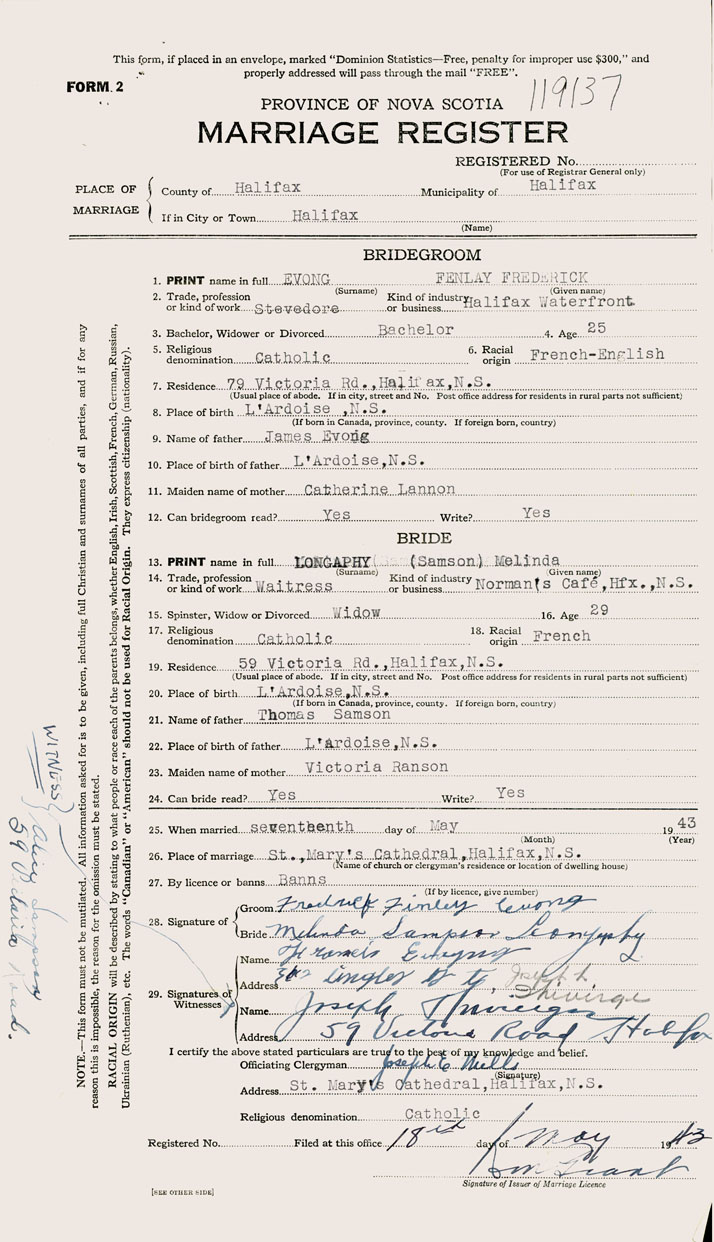 This form, if placed in an envelope, marked "Dominion Statistics—Free, penalty for improper use $300," and
properly addressed will pass through the mail "FREE".
FORM 2
119137
PROVINCE OF NOVA SCOTIA
MARRIAGE REGISTER
REGISTERED No.
(For use of Registrar General only)
PLACE OF MARRIAGE
County of Halifax Municipality of Halifax
If in City or Town Halifax
(Name)
BRIDEGROOM
1. PRINT name in full EVONG FENLAY FREDERICK
(Surname) (Given name)
2. Trade, profession or kind of work Stevedore Kind of industry or business Halifax Waterfront
3. Bachelor, Widower or Divorced Bachelor 4. Age 25
5. Religious denomination Catholic 6. Racial origin French-English
7. Residence 79 Victoria Rd.,Halifax,N.S.
(Usual place of abode. If in city, street and No. Post office address for residents in rural parts not sufficient)
8. Place of birth L'Ardoise ,N.S.
(If born in Canada, province, county. If foreign born, country)
9. Name of father James Evong
10. Place of birth of father L'Ardoise,N.S.
11. Maiden name of mother Catherine Lannon
12. Can bridegroom read? Yes Write? Yes
BRIDE
13. PRINT name in full LONGAPHY (Samson) Melinda
(Surname) (Given name)
14. Trade, profession or kind of work Waitress Kind of industry or business Norman's Café,Hfx.,N.S.
15. Spinster, Widow or Divorced Widow 16. Age 29
17. Religious denomination Catholic 18. Racial origin French
19. Residence 59 Victoria Rd.,Halifax,N.S.
(Usual place of abode. If in city, street and No. Post office address for residents in rural parts not sufficient)
20. Place of birth L'Ardoise,N.S.
(If born in Canada, province, county. If foreign born, country)
21. Name of father Thomas Samson
22. Place of birth of father L'Ardoise,N.S.
23. Maiden name of mother Victoria Ranson
24. Can bride read? Yes Write? Yes
25. When married seventhenth day of May 1943
(Month) (Year)
26. Place of marriage St.,Mary's Cathedral,Halifax,N.S.
(Name of church or clergyman's residence or location of dwelling house)
27. By licence or banns Banns
(If by licence, give number)
28. Signature of
Groom Fredrick Finley Evong
Bride Melinda Sampson Longaphy
29. Signatures of Witnesses
Name Francis
Address
Joseph
Name Joseph
Address 59 Victoria Road Halifax
I certify the above stated particulars are true to the best of my knowledge and belief.
Officiating Clergyman Joseph E Mills
(Signature)
Address St. Mary's Cathedral,Halifax,N.S.
Religious denomination Catholic
Registered No. Filed at this office 18th day of May 1943
Grant
Signature of Issuer of Marriage Licence
[SEE OTHER SIDE]
NOTE.—This form must not be mutilated. All information asked for is to be given, including full Christian and surnames of all parties, and if for any
reason this is impossible, the reason for the omission must be stated.
RACIAL ORIGIN will be described by stating to what people or race each of the parents belongs, whether English, Irish, Scottish, French, German, Russian,
Ukrainian (Ruthenian), etc. The words "Canadian" or "American" should not be used for Racial Origin. They express citizenship (nationality).
WITNESS
Alice Sampson
59 Victoria Road.